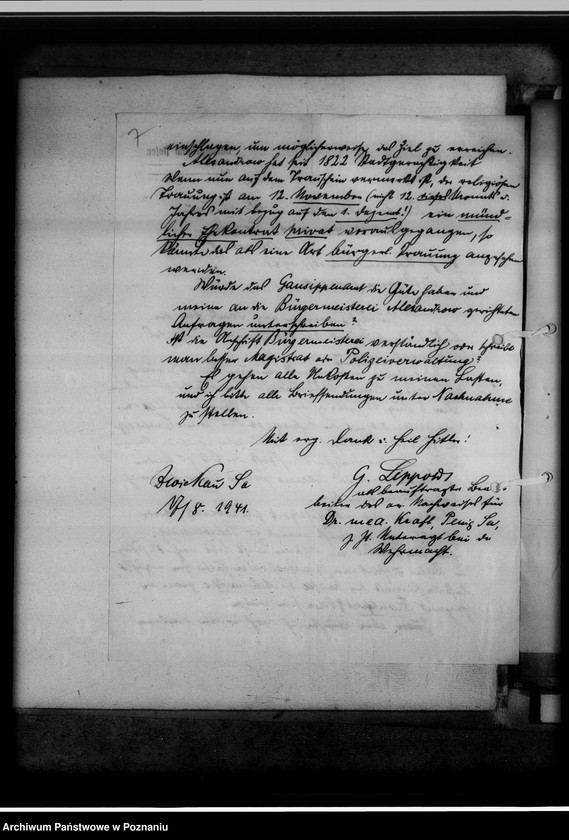 7
einschlagen, um möglicherweise das Ziel zu erreichen.
Alexandrow hat seit 1822 Stadtgerechtigkeit
Wenn nun auf dem Trauschein vermerkt ist, der religiösen
Trauung ist am 12. November (nicht 12. dieses Monats u.
Jahres mit bezug auf den 1. Dezemb.!) ein münd-
licher Ehekontrat privat vorausgegangen, so
könnte das als eine Art bürgerl. Trauung angesehen
werden.
Würde das Gausippenamt die Güte haben und
meine an die Bürgermeisterei Alexandrow gerichteten
Anfragen unterschreiben?
Ist die Anschrift Bürgermeisterei verständlich oder schreibt
man besser Magistrat oder Polizeiverwaltung?
Es gehen alle Unkosten zu meinen Lasten,
und ich bitte alle Briefsendungen unter Nachnahme
zu stellen.
Mit erg. Dank u. Heil Hitler!
Zwickau Sa
8. 1941.
G. Leppold
als beauftragter Bear-
beiter des ar. Nachweises für
Dr. med. Kraft, Penig Sa,
z Zt. Unterarzt bei der
Wehrmacht.
Archiwum Państwowe w Poznaniu